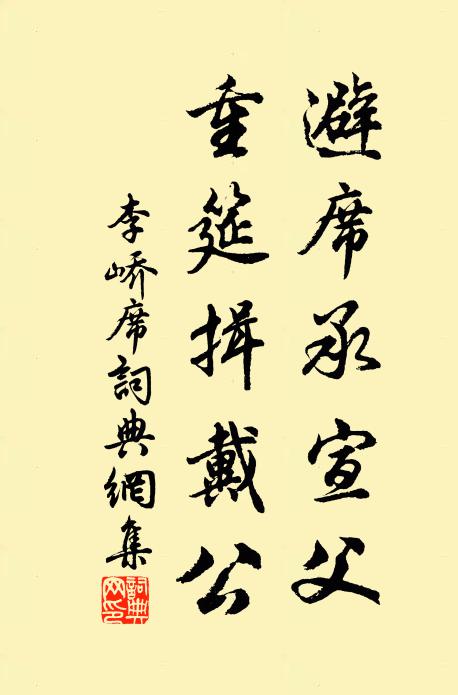 避席承宣父
重筵揖戴公
李嶠席詞典網集
詞典网印